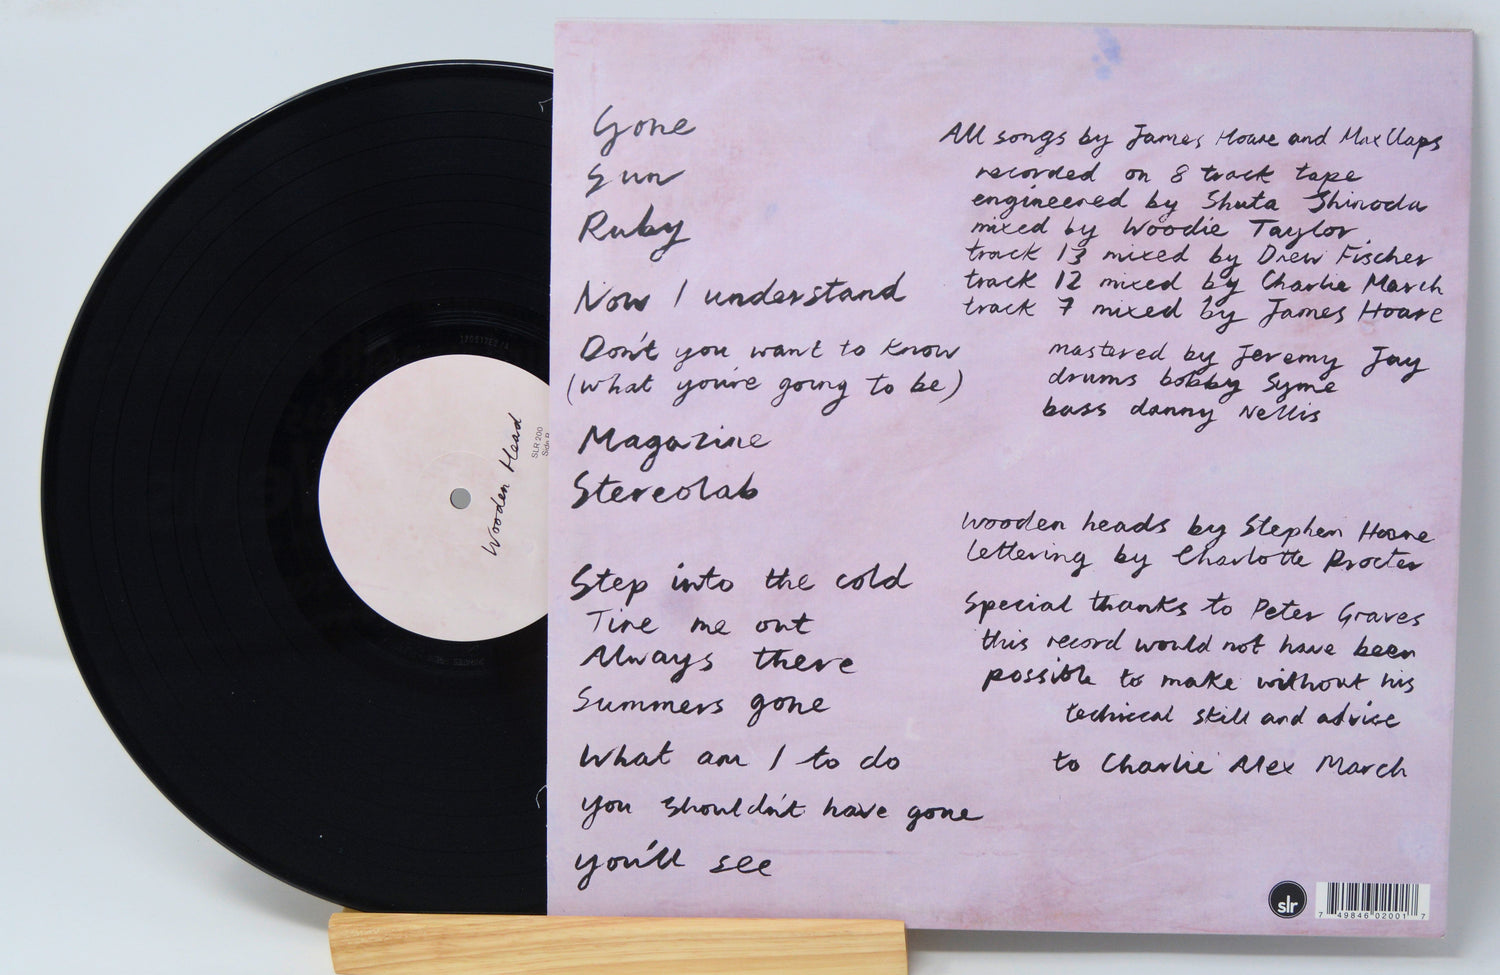 Gone
Sun
Ruby
Now I understand
Don't you want to know
(what you're going to be)
Magazine
Stereolab
Step into the cold
Tire me out
Always there
Summers gone
What am I to do
you shouldn't have gone
you'll see
All songs by James Hoare and Max Claps
recorded on 8 track tape
engineered by Shuta Shinoda
mixed by Woodie Taylor
track 13 mixed by Drew Fischer
track 12 mixed by Charlie March
track 7 mixed by James Hoare
mastered by Jeremy Jay
drums bobby Syme
bass danny Nellis
wooden heads by Stephen Hoare
lettering by Charlotte Procter
Special thanks to Peter Graves
this record would not have been
possible to make without his
technical skill and advise
to Charlie Alex March
slr
7 49846 02001 7
Wooden Head
SLR 200
Side B